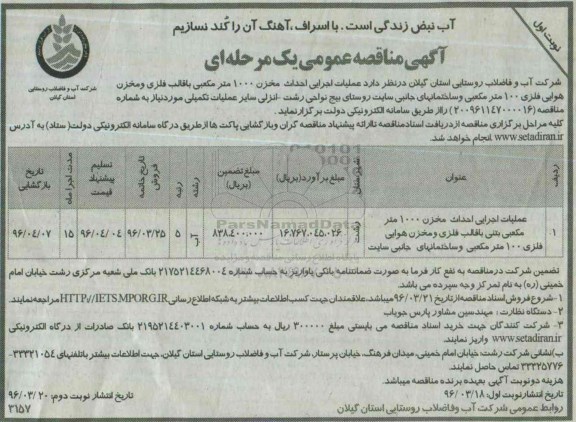 آب نبض زندگی است. با اسراف، آهنگ آن را کُند نسازیم
نوبت اول
آگهی مناقصه عمومی یک مرحله ای
شرکت آب و فاضلاب روستایی
استان گیلان
شرکت آب و فاضلاب روستایی استان گیلان درنظر دارد عملیات اجرایی احداث مخزن ۱۰۰۰ متر مکعبی باقالب فلزی ومخزن
هوایی فلزی ۱۰۰ متر مکعبی وساختمانهای جانبی سایت روستای بیج نواحی رشت -انزلی سایر عملیات تکمیلی موردنیاز به شماره
مناقصه (۲۰۰۹۶۱۱۴۷۰۰۰۰۱۶) رااز طریق سامانه الکترونیکی دولت برگزار نماید.
کلیه مراحل برگزاری مناقصه ازدریافت اسنادمناقصه تاارائه پیشنهاد مناقصه گران وبازگشایی پاکت ها ازطریق درگاه سامانه الکترونیکی دولت (ستاد) به آدرس
www.setadiran.ir انجام خواهد شد.
ردیف
عنوان
مبلغ برآورد(ریال)
مبلغ تضمین (بریال)
رشته
رتبه
تاریخ خاتمه فروش
تسلیم پیشنهاد قیمت
مدت اجرا ماه
تاریخ بازگشایی
۱
عملیات اجرایی احداث مخزن ۱۰۰۰ متر
مکعبی بتنی باقالب فلزی ومخزن هوایی
فلزی ۱۰۰ متر مکعبی وساختمانهای جانبی سایت
رشت
۱۶.۷۶۷.۰۴۵.۰۲۶
۸۳۸.۴۰۰.۰۰۰
آب
۵
۹۶/۰۳/۲۵
۹۶/۰۴/۰۴
۱۵
۹۶/۰۴/۰۷
ParsNamadData
تضمین شرکت درمناقصه به نفع کارفرما به صورت ضمانتنامه بانکی یاواریز به حساب شماره ۲۱۷۵۲۱۴۴۶۸۰۰۴ بانک ملی شعبه مرکزی رشت خیابان امام
خمینی (ره) به نام تمرکز وجه سپرده می باشد.
۱-شروع فروش اسناد مناقصه ازتاریخ ۹۶/۰۳/۲۱ میباشد.علاقمندان جهت کسب اطلاعات بیشتر به شبکه اطلاع رسانی HTTP//IETS.MPORG.IR مراجعه نمایند.
۲- دستگاه نظارت : مهندسین مشاور پارس جویاب
۳- شرکت کنندگان جهت خرید اسناد مناقصه می بایستی مبلغ ۳۰۰۰۰۰ ریال به حساب شماره ۲۱۹۵۲۱۴۴۰۳۰۰۱ بانک صادرات از درگاه الکترونیکی
www.setadiran.ir واریز نمایند.
ب)نشانی شرکت رشت: خیابان امام خمینی، میدان فرهنگ، خیابان پرستار، شرکت آب و فاضلاب روستایی استان گیلان، جهت اطلاعات بیشتر باتلفنهای ۳۳۳۲۱۰۵۴-
۳۳۳۲۵۷۷۶ تماس حاصل نمایند.
هزینه دونوبت آگهی بعهده برنده مناقصه میباشد.
تاریخ انتشار نوبت اول: ۹۶/۰۳/۱۸
تاریخ انتشار نوبت دوم: ۹۶/۰۳/۲۰
روابط عمومی شرکت آب وفاضلاب روستایی استان گیلان
۳۱۵۷